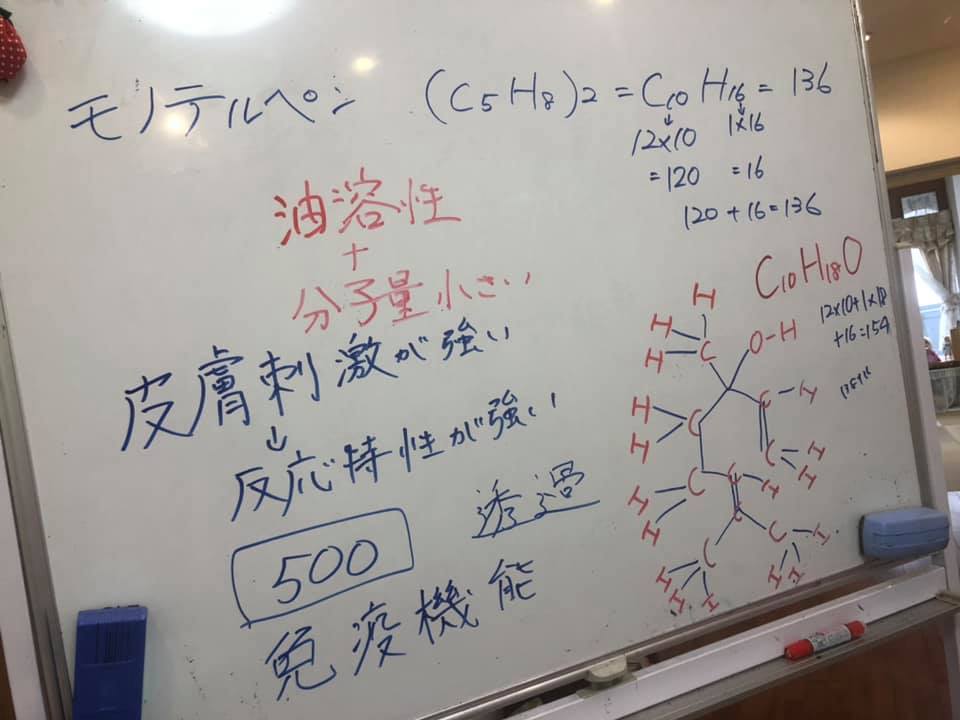 モノテルペン (C5H8)2 = C10H16 = 136
↓ ↓
12×10 1×16
=120 =16
120+16=136
油溶性
+
分子量小さい
皮膚刺激が強い
↓
反応特性が強い
500
透過
免疫機能
C10H18O
12×10+1×18
+16=154
H
H
H C O-H
H C C H
H
C H
H
H C C H
H
C
C C H
H H H H H H